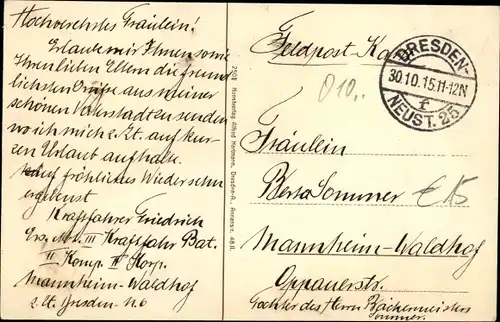 Hochverehrtes Fräulein!
Erlaube mir Ihnen sowie
Ihren lieben Eltern die freund
lichsten Grüße aus meiner
schönen Vaterstadt zu senden
wo ich mich z. Zt. auf kur-
zen Urlaub aufhalte.
Auf fröhliches Wiedersehn
ergebenst
Kraftfahrer Friedrich
III Kraftfahr Bat.
II Komp. Korp.
Mannheim-Waldhof
z. Zt. Dresden N6
2503 Kunstverlag Alfred Hartmann, Dresden-A., Annenstr. 48 II.
Feldpost Ka
DRESDEN-
30.10.15.11-12N
NEUST. 25
f
010,-
Fräulein
Berta Sommer
€ 15
Mannheim-Waldhof
Oppauerstr.
Tochter des Herrn Bäckermeisters
Sommer.